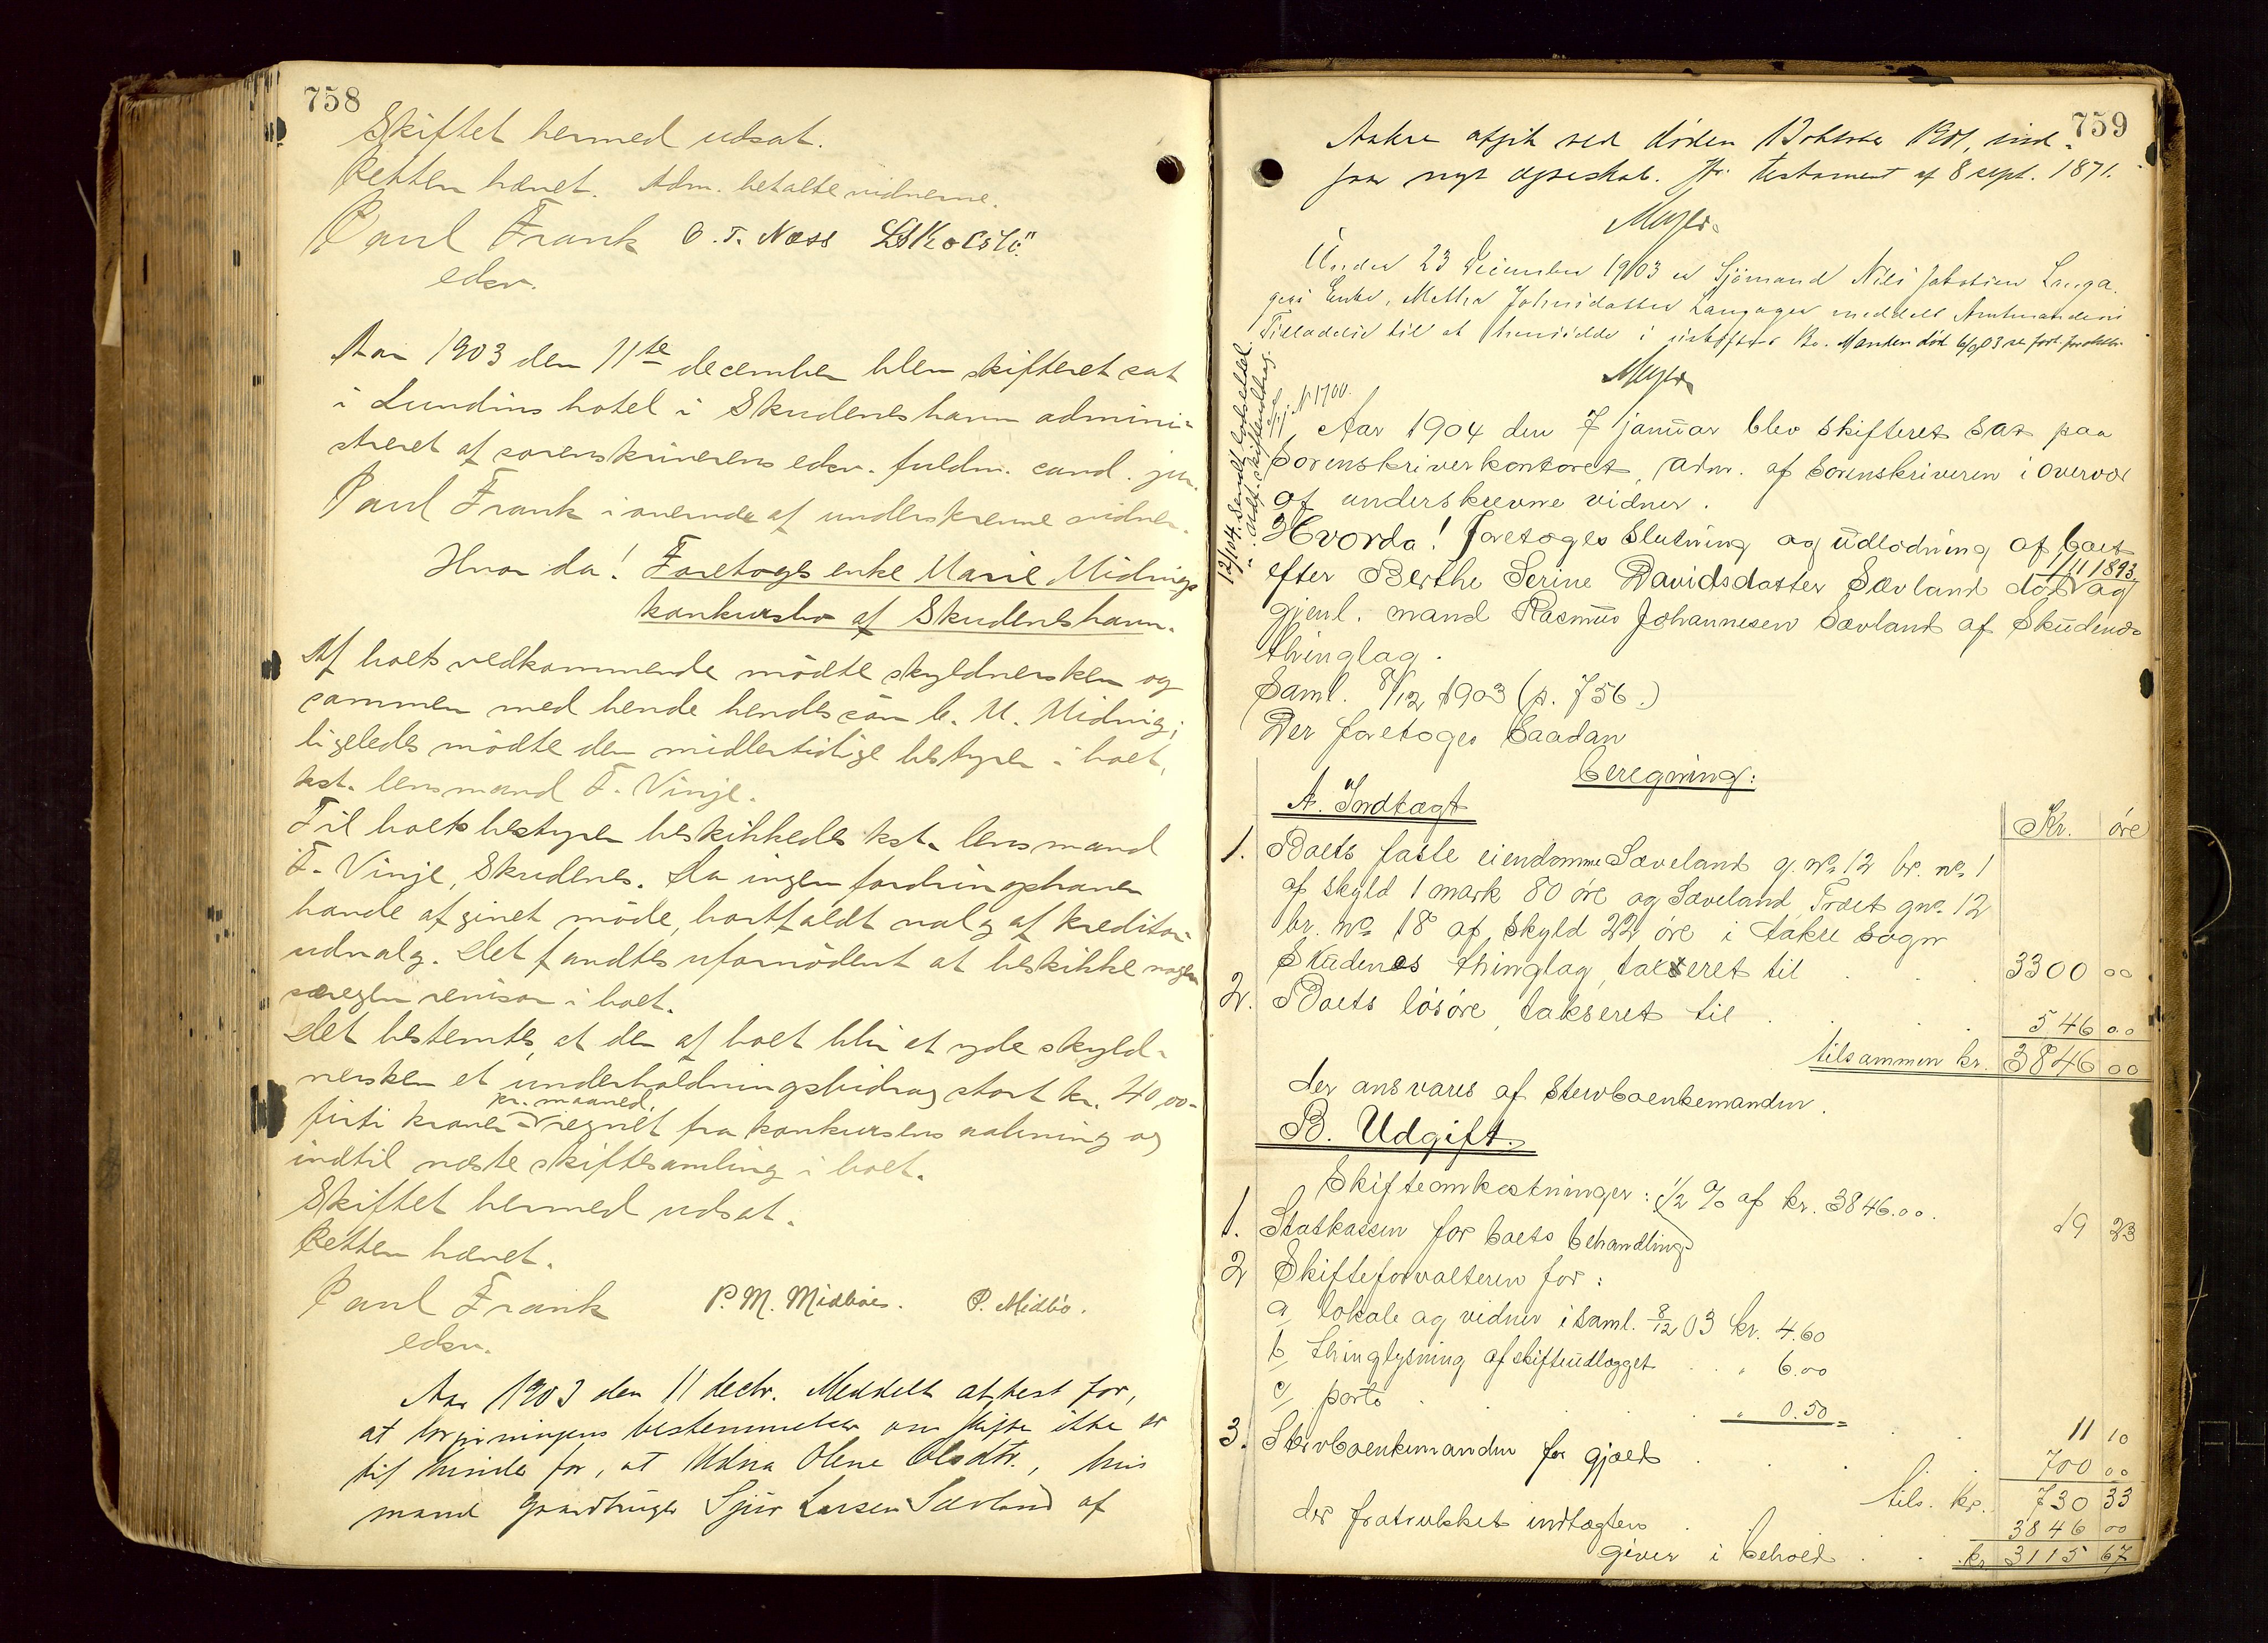 758
Skiftet hermed udsat.
Retten hævet. Adm. betalte vidnerne.
Paul Frank O. T. Næss
edsv.
Aar 1903 den 11te december blev skifteret sat
i Lundins hotel i Skudeneshavn admini-
streret af sorenskriverens edsv. fuldm. cand. jur.
Paul Frank i overvær af underskrevne vidner.
Hvor da! Foretoges enke Marie Midings
konkursbo af Skudeneshavn.
Af boets vedkommende mödte skyldnersken og
sammen med hende hendes sön M. Miding;
ligeledes mödte den midlertidige bestyrer i boet,
kst. lensmand F. Vinje.
Til boets bestyrer beskikkedes kst. lensmand
F. Vinje, Skudenes. Da ingen fordringshaver
havde afgivet möde, bortfaldt valg af kreditor-
udvalg. Det fandtes ufornödent at beskikke nogen
særegen revisor i boet.
Det bestemtes, at der af boet blir at yde skyld-
nersken et underholdningsbidrag stort kr. 40,00-
firti kroner - pr. maaned, regnet fra konkursens aabning og
indtil næste skiftesamling i boet.
Skiftet hermed udsat.
Retten hævet.
Paul Frank P. M. Midböes. P. Midbö.
edsv.
Aar 1903 den 11 decbr. Meddelt attest for,
at lovgivningens bestemmelser om skifte ikke er
til hinder for, at Udna Olene Olsdtr., hvis
mand gaardbruger Sjur Larsen Sævland af
759
Aakre afgik ved döden 12 oktober 1901, ind-
gaar nyt ægteskab. Jfr. testament af 8 sept. 1871.
Meyer.
Under 23 December 1903 er Sjömand Nils Jakobsen Langa-
gers Enke, Mette Johnsdatter Langager meddelt Amtmandens
Tilladelse til at hensidde i uskiftet Bo. Manden död 6/9 03 se
Meyer
12/1 04. Sendt lodseddel
" udf. skifteudlæg.
Aar 1904 den 7 januar blev skifteret sat paa
Sorenskriverkontoret, adm. af Sorenskriveren i overvær
af underskrevne vidner.
Hvorda! foretoges Slutning og udlodning af boet
efter Berthe Serine Davidsdatter Sævland död 1/11 1893 og
gjenl. mand Rasmus Johannesen Sævland af Skudenes
thinglag.
Saml. 8/12 1903 (p. 756.)
Der foretoges saadan
beregning:
A. Indtægt
Kr. öre
1. Boets faste eiendomme Sæveland g. no. 12 br. no. 1
af skyld 1 mark 80 öre og Sæveland, Træet gno. 12
br. no. 18 af skyld 22 öre i Aakre sogn
Skudenes thinglag, takseret til . . . 3300 00
2. Boets lösöre, takseret til . . . 546 00
tilsammen kr. 3846 00
der ansvares af stervboenkemanden.
B. Udgift.
Skifteomkostninger: 1/2 % af kr. 3846.00.
1. Statskassen for boets behandling 19 23
2 Skifteforvalteren for:
a, lokale og vidner i saml. 8/12 03 kr. 4.60
b, thinglysning af skifteudlægget . . " 6.00
c, porto . . . " 0.50 = 11 10
3. Stervboenkemanden for gjæld . . . 700 00
tils. kr. 730 33
der fratrukket indtægten . . 3846 00
giver i behold . . kr 3115 67